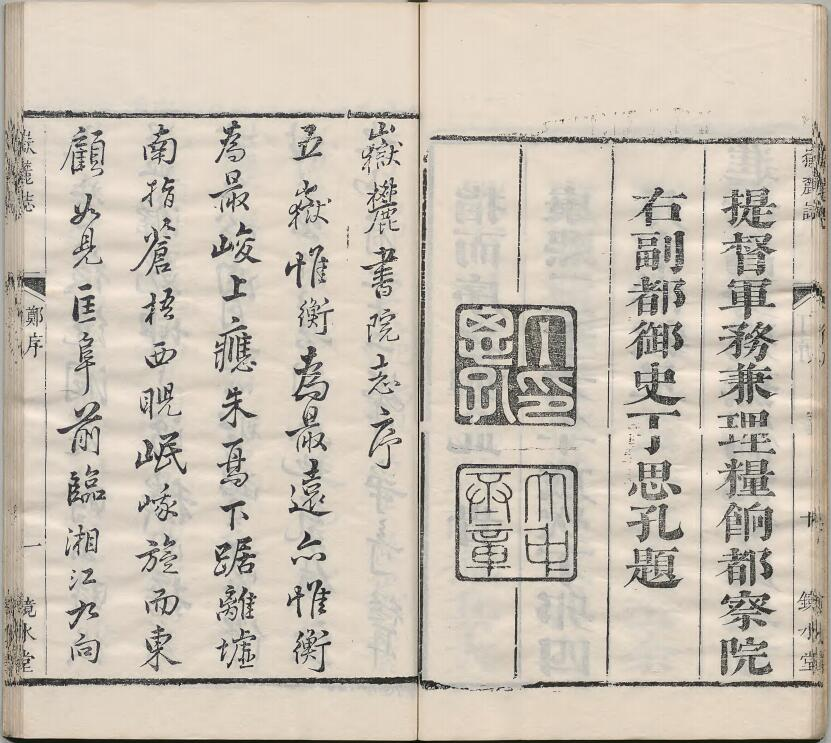 嶽麓誌
鏡水堂
提督軍務兼理糧餉都察院
右副都御史丁思孔題
丁印思孔
大中丞章
嶽麓書院志序
五嶽惟衡為最遠亦惟衡
為最峻上應朱鳥下踞離墟
南指蒼梧西睨岷峨旋而東
顧如見匡阜前臨湘江九向
嶽麓志
鄭序
一
鏡水堂